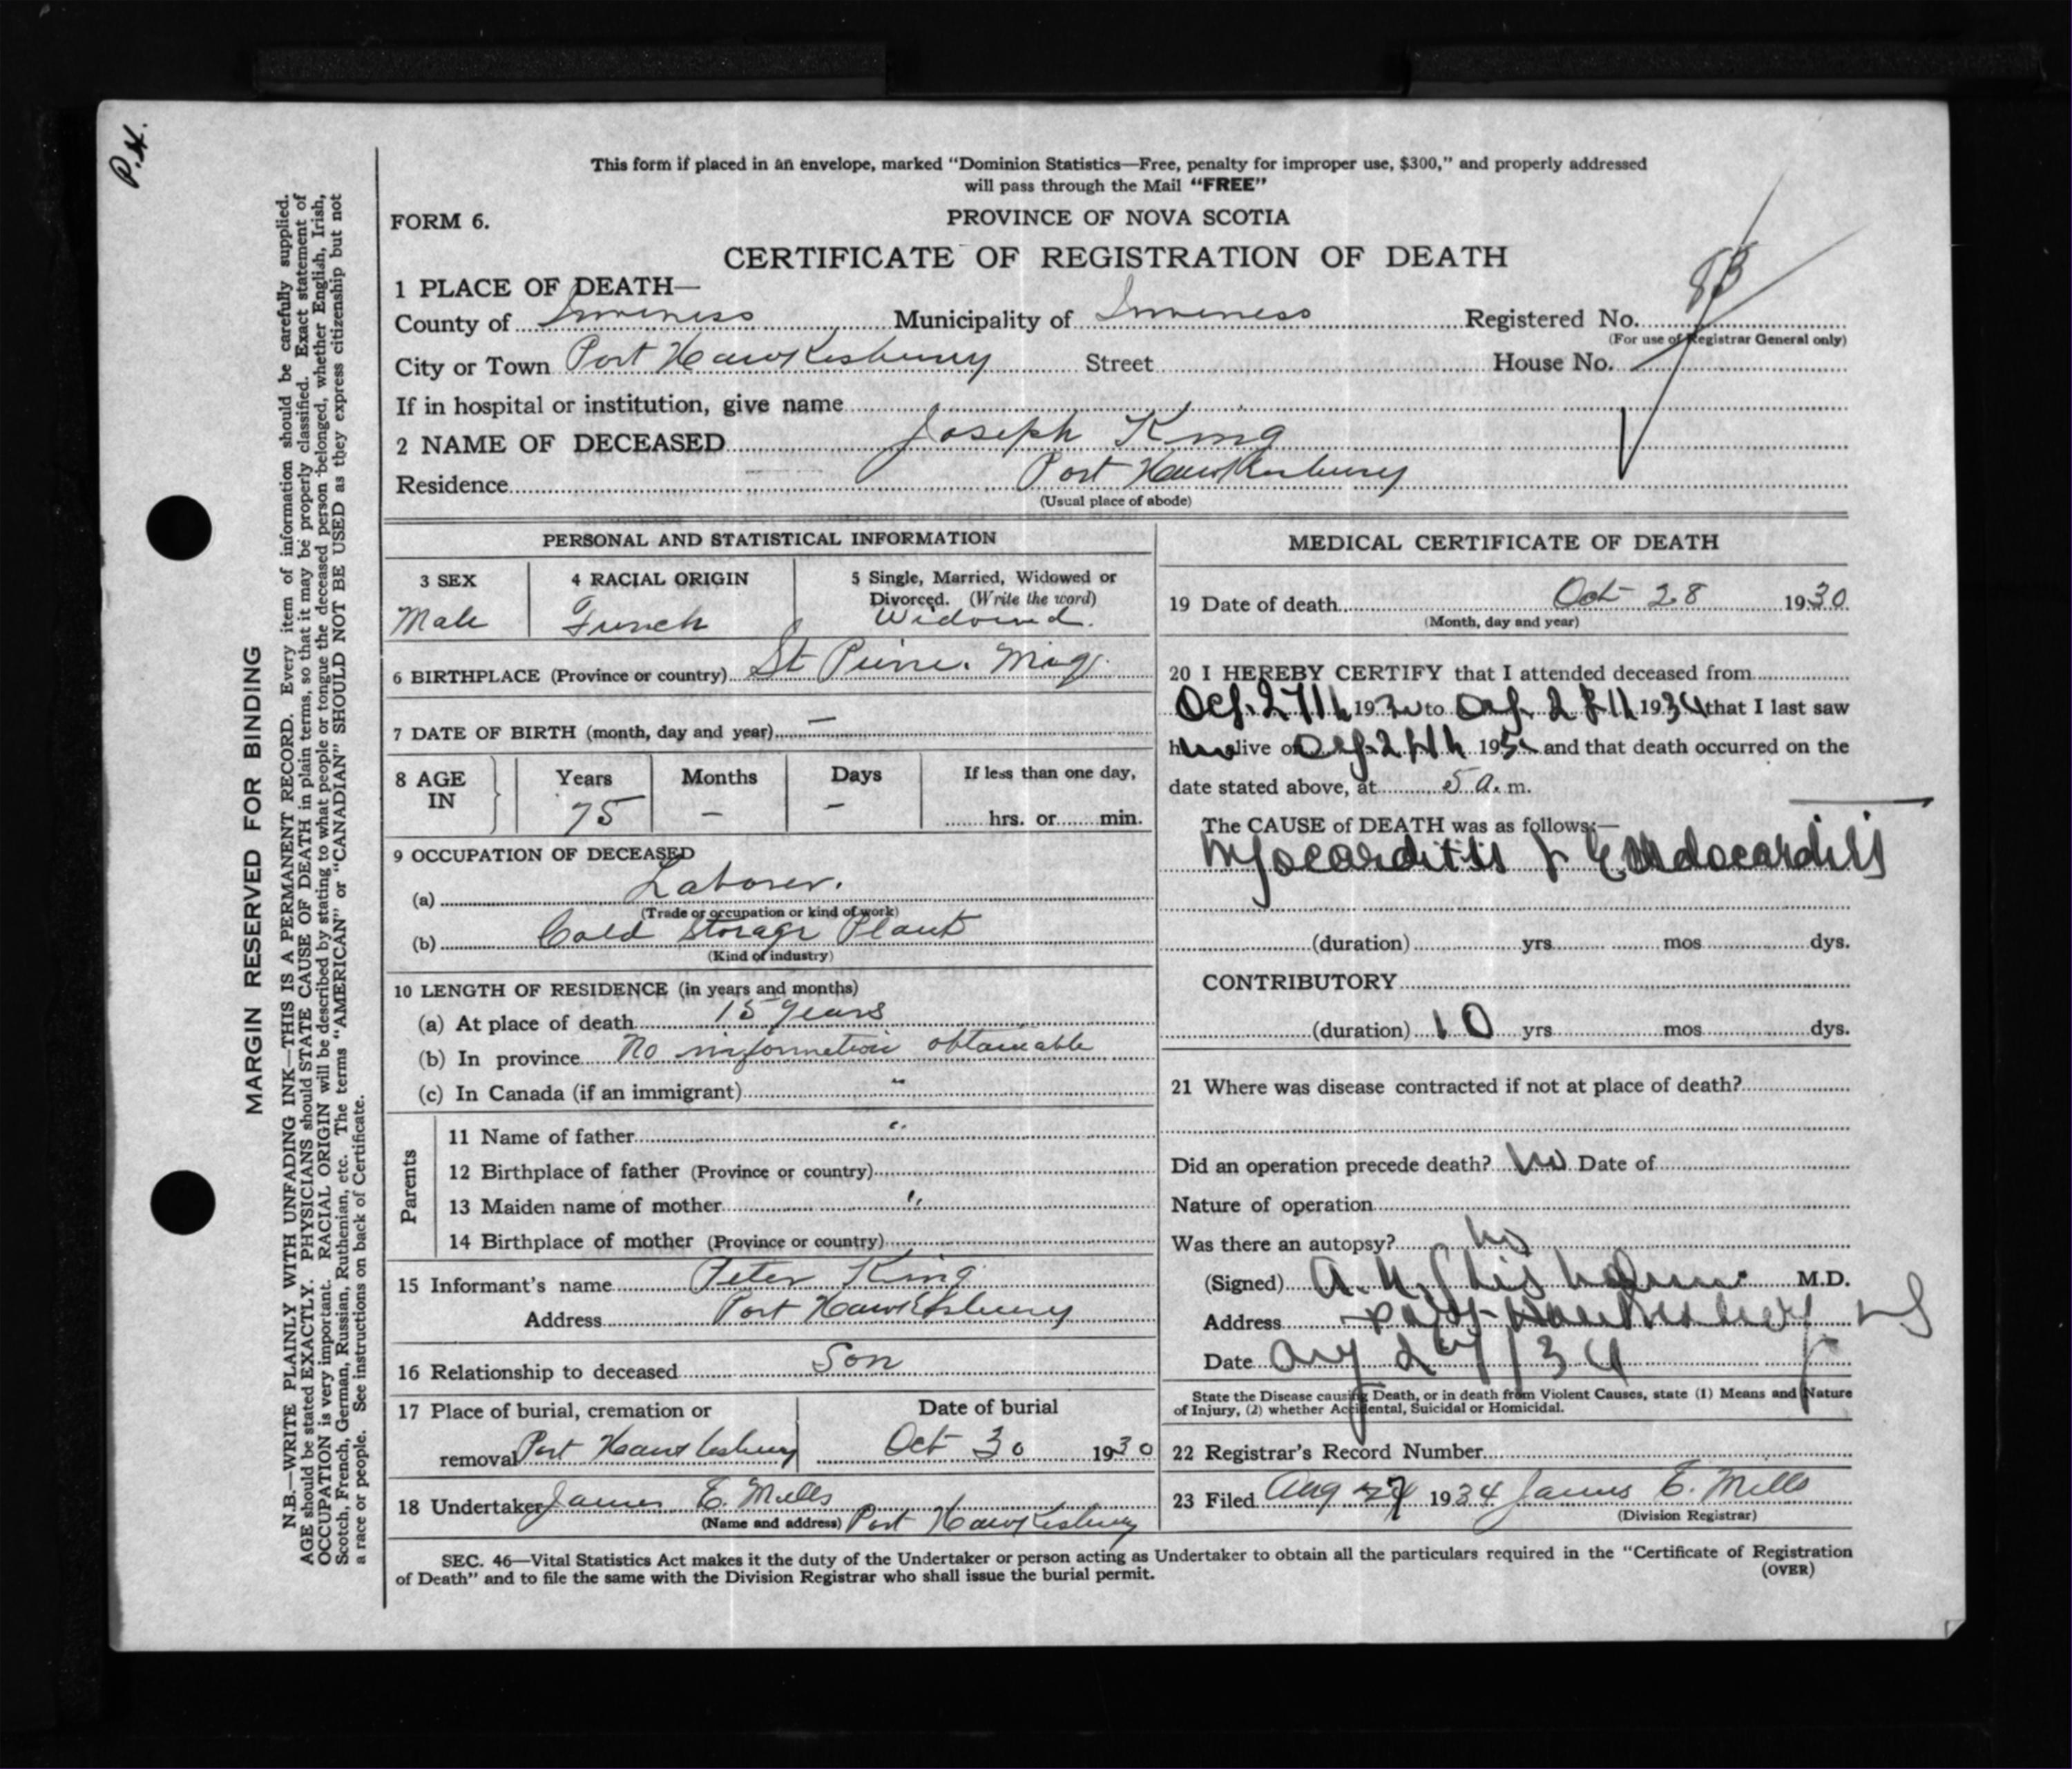 P.H.
MARGIN RESERVED FOR BINDING
N.B.—WRITE PLAINLY WITH UNFADING INK—THIS IS A PERMANENT RECORD. Every item of information should be carefully supplied.
AGE should be stated EXACTLY. PHYSICIANS should STATE CAUSE OF DEATH in plain terms, so that it may be properly classified. Exact statement of
OCCUPATION is very important. RACIAL ORIGIN will be described by stating to what people or tongue the deceased person belonged, whether English, Irish,
Scotch, French, German, Russian, Ruthenian, etc. The terms "AMERICAN" or "CANADIAN" SHOULD NOT BE USED as they express citizenship but not
a race or people. See instructions on back of Certificate.
This form if placed in an envelope, marked "Dominion Statistics—Free, penalty for improper use, $300," and properly addressed
will pass through the Mail "FREE"
FORM 6.
PROVINCE OF NOVA SCOTIA
CERTIFICATE OF REGISTRATION OF DEATH
1 PLACE OF DEATH—
County of Inverness Municipality of Inverness Registered No.
(For use of Registrar General only)
City or Town Port Hawkesbury Street House No.
If in hospital or institution, give name
2 NAME OF DECEASED Joseph King
Residence Port Hawkesbury
(Usual place of abode)
PERSONAL AND STATISTICAL INFORMATION
3 SEX 4 RACIAL ORIGIN 5 Single, Married, Widowed or
Divorced. (Write the word)
Male French Widowed.
6 BIRTHPLACE (Province or country) St Pierre. Miq.
7 DATE OF BIRTH (month, day and year) —
8 AGE IN Years Months Days If less than one day,
75 – – hrs. or min.
9 OCCUPATION OF DECEASED
(a) Laborer.
(Trade or occupation or kind of work)
(b) Cold Storage Plant
(Kind of industry)
10 LENGTH OF RESIDENCE (in years and months)
(a) At place of death 15 years
(b) In province No information obtainable
(c) In Canada (if an immigrant) "
Parents
11 Name of father "
12 Birthplace of father (Province or country)
13 Maiden name of mother "
14 Birthplace of mother (Province or country)
15 Informant's name Peter King
Address Port Hawkesbury
16 Relationship to deceased Son
17 Place of burial, cremation or Date of burial
removal Port Hawkesbury Oct 30 1930
18 Undertaker James E. Mills
(Name and address) Port Hawkesbury
MEDICAL CERTIFICATE OF DEATH
19 Date of death Oct 28 1930
(Month, day and year)
20 I HEREBY CERTIFY that I attended deceased from
Oct. 27th 1930 to 193 that I last saw
him alive on 19 and that death occurred on the
date stated above, at 5 a. m.
The CAUSE of DEATH was as follows:—
Myocarditis & Endocarditis
(duration) yrs mos dys.
CONTRIBUTORY
(duration) 10 yrs mos dys.
21 Where was disease contracted if not at place of death?
Did an operation precede death? No Date of
Nature of operation
Was there an autopsy? No
(Signed) A. N. Chisholm M.D.
Address Port Hawkesbury NS
Date Aug 27/34
State the Disease causing Death, or in death from Violent Causes, state (1) Means and Nature
of Injury, (2) whether Accidental, Suicidal or Homicidal.
22 Registrar's Record Number
23 Filed Aug 27 1934 James E. Mills
(Division Registrar)
SEC. 46—Vital Statistics Act makes it the duty of the Undertaker or person acting as Undertaker to obtain all the particulars required in the "Certificate of Registration
of Death" and to file the same with the Division Registrar who shall issue the burial permit.
(OVER)